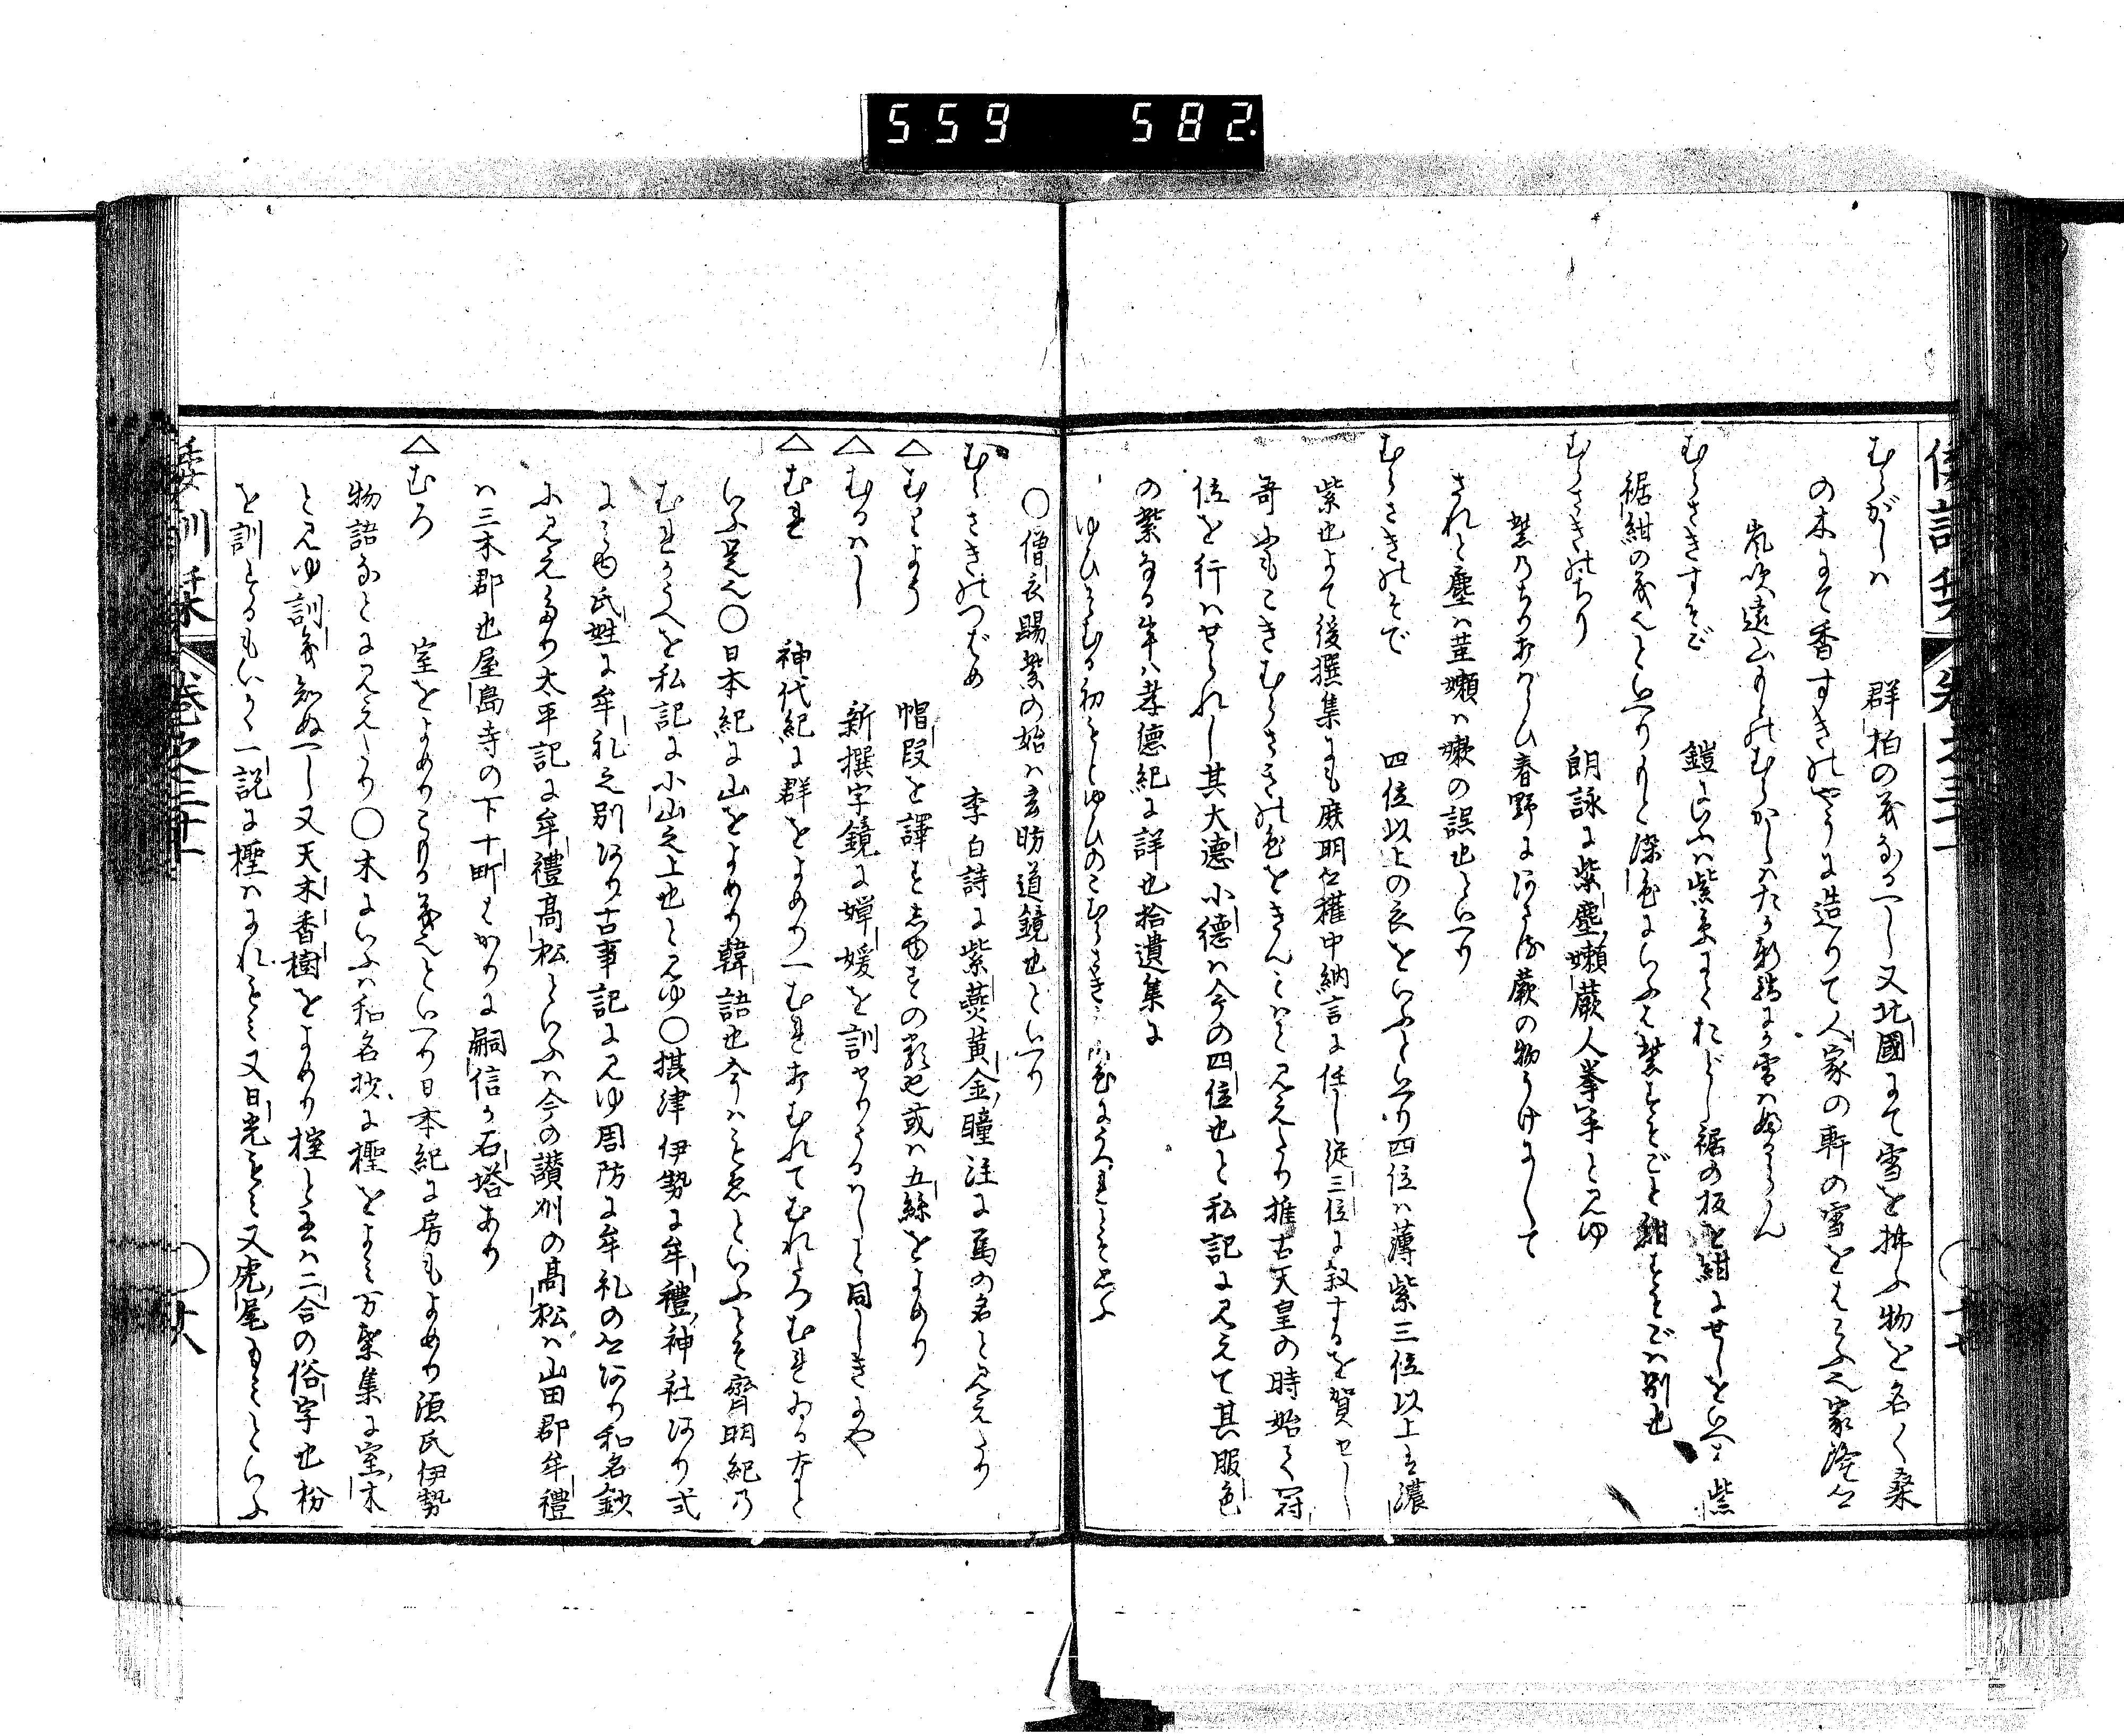 559 582
倭訓栞 巻之三十一 ○ 十七
むらがしハ 群柏の義なるへし又北國にて雪を拂ふ物を名く桑
の木にて香すきのやうに造りて人家の軒の雪をはらふ也家隆公
嵐吹遠山もとのむらかしハたか軒端より雪はらふらん
むらさきすそご 鎧にいふハ紫糸にておどし裾の板を紺にせしをいへは紫
裾紺の義也といへりもと深色にいふは紫すそごと紺すそごハ別也
むらさきのちり 朗詠に紫塵嬾蕨人拳手と見ゆ
紫のちりうちはらひ春野にあさる蕨の物うけにして
されと塵ハ茎嬾ハ嫩の誤也といへり
むらさきのそで 四位以上の衣をいふといへり四位ハ薄紫三位以上は濃
紫也よて後撰集にも庶明公權中納言に任し従三位に叙するを賀せし
哥にもこきむらさきの色をきんとはと見えたり推古天皇の時始て冠
位を行ハせられし其大德小德ハ今の四位也と私記に見えて其服色
の紫なる事ハ孝德紀に詳也拾遺集に
ゆひそむる初もとゆひのこむらさき衣の色にうつれとそ思ふ
○僧衣賜紫の始ハ玄昉道鏡也といへり
むらさきのつばめ 李白詩に紫燕黄金瞳注に馬の名と見えたり
△むりよう 帽段を譯せしゆすの類也或ハ五絲をよめり
△むるハし 新撰字鏡に嬋媛を訓せりうるハしと同しきにや
△むれ 神代紀に群をよめり一むれ打むれてむれたつむれゐるなと
いふ是也○日本紀に山をよめり韓語也今ハもゑといふとそ齊明紀の
むれのうへを私記に小山之上也と見ゆ○摂津伊勢に牟禮神社あり式
に見ゆ氏姓に牟礼之別あり古事記に見ゆ周防に牟礼の公あり和名鈔
に見えたり太平記に牟禮高松といふハ今の讃州の高松ハ山田郡牟禮
ハ三木郡也屋島寺の下十町はかりに嗣信か石塔あり
△むろ 室をよめりこもる義也といへり日本紀に房もよめり源氏伊勢
物語なとに見えたり○木にいふハ和名抄に檉をよみ万葉集に室木
と見ゆ訓義知ぬへし又天木香樹をよめり榁と書ハ二合の俗字也枌
を訓するもいかゝ一説に檉ハにれもみ又日光もみ又虎尾もみといふ
倭訓栞 巻之三十一 ○ 十八